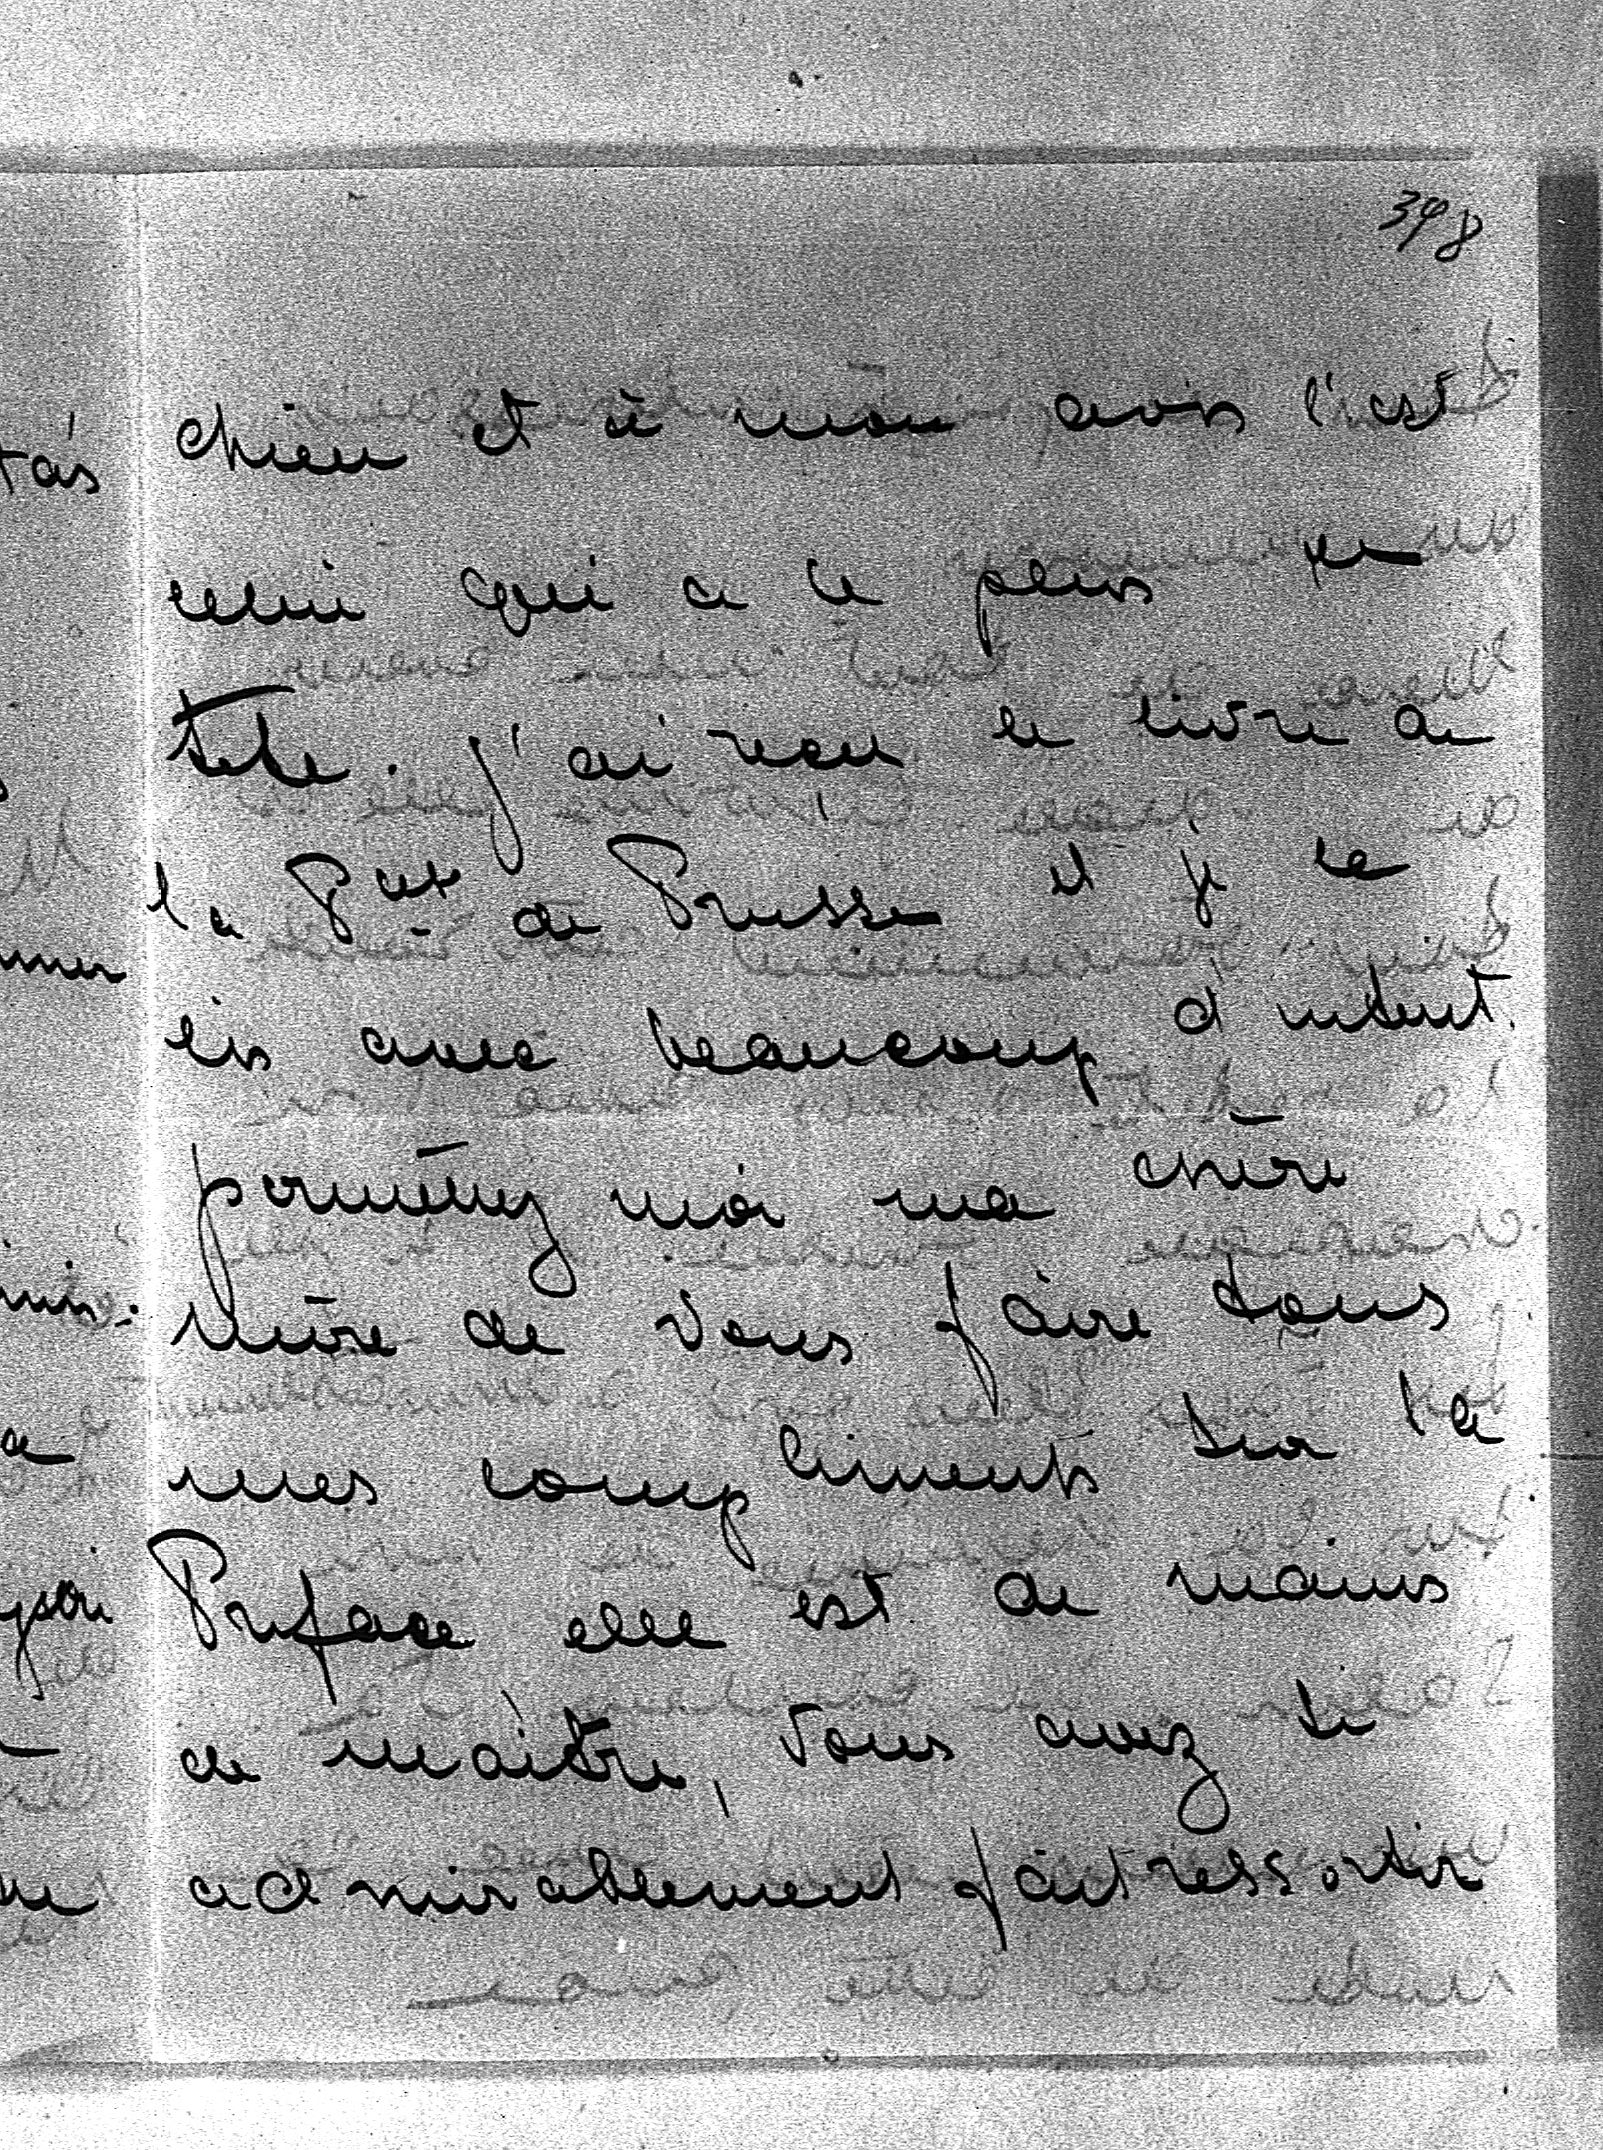 398
chien et à mon avis c'est
celui qui a le plus de
tete. j'ai reçu le livre de
la Pss de Prusse et je le
lis avec beaucoup d'interet.
permettez moi ma chère
Mère de Vous faire tous
mes compliments sur la
Preface elle est de mains
de maitre, Vous avez si
admirablement fait ressortir